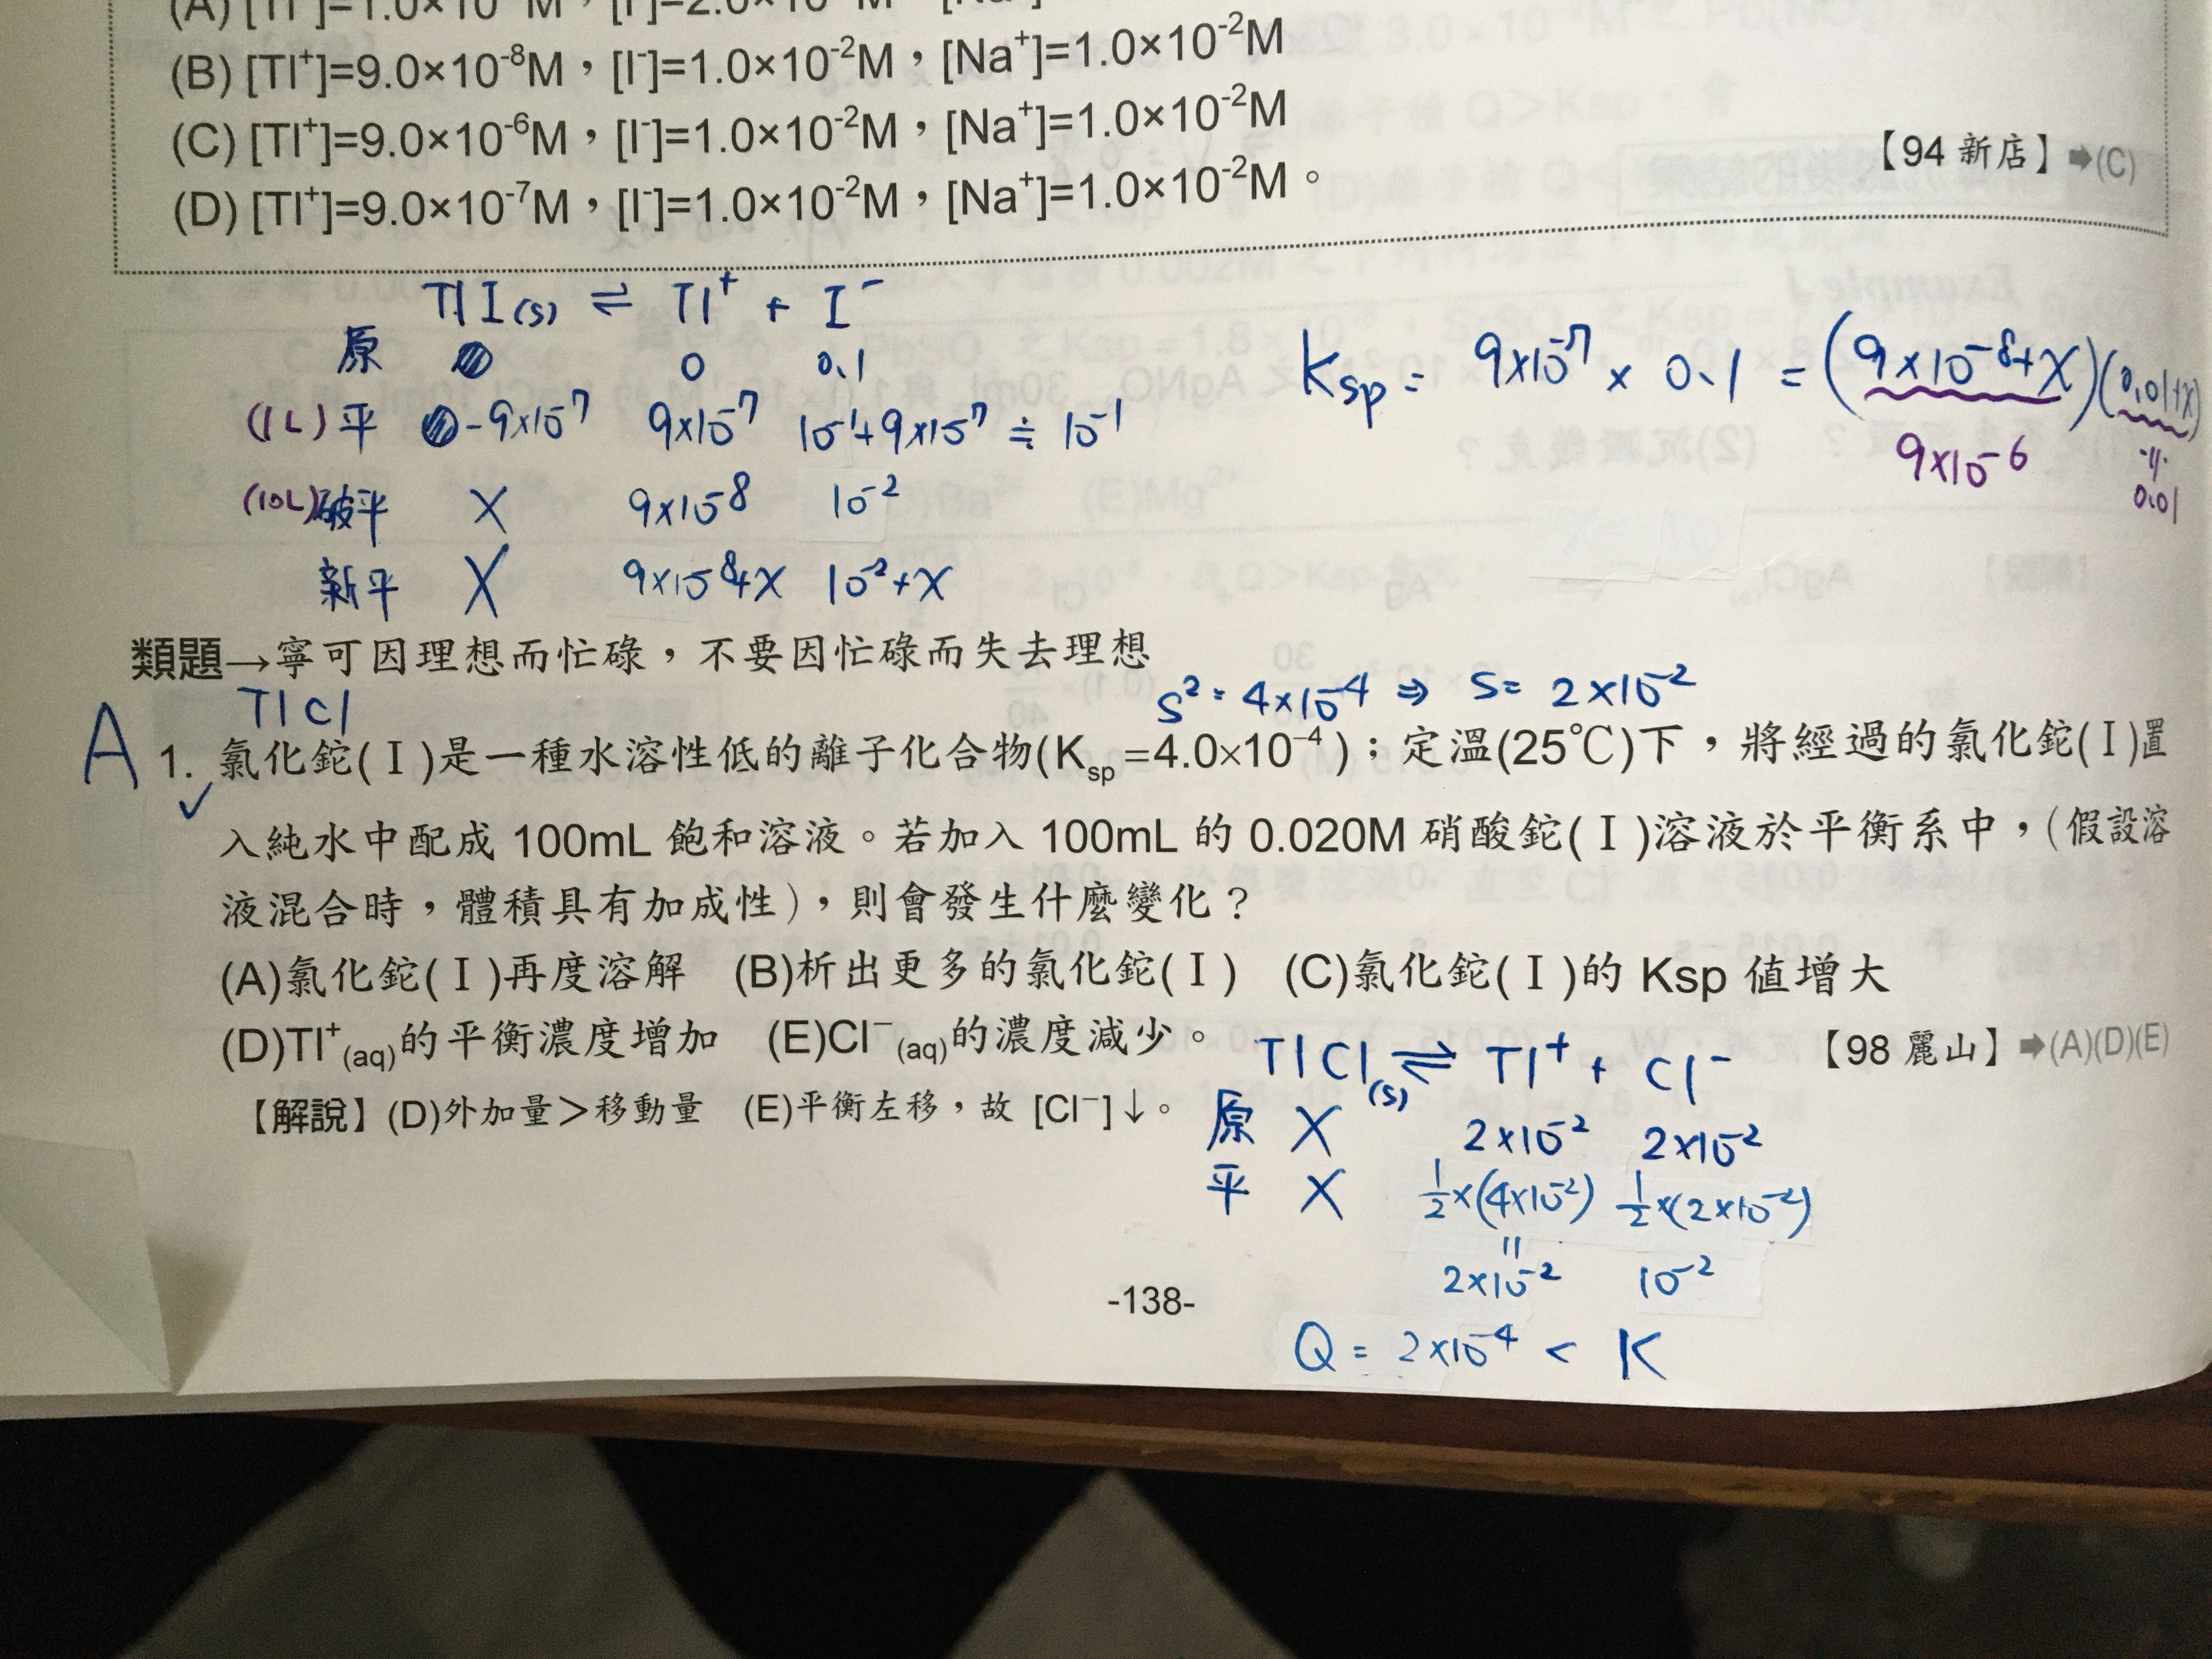 (A) [Tl⁺]=1.0×10 M，[I⁻]=2.0×10⁻² M
(B) [Tl⁺]=9.0×10⁻⁸M，[I⁻]=1.0×10⁻²M，[Na⁺]=1.0×10⁻²M
(C) [Tl⁺]=9.0×10⁻⁶M，[I⁻]=1.0×10⁻²M，[Na⁺]=1.0×10⁻²M
(D) [Tl⁺]=9.0×10⁻⁷M，[I⁻]=1.0×10⁻²M，[Na⁺]=1.0×10⁻²M。
【94 新店】➡(C)
TlI(s) ⇌ Tl⁺ + I⁻
原 0 0.1
(1L) 平 -9×10⁻⁷ 9×10⁻⁷ 10⁻¹+9×10⁻⁷ ≒ 10⁻¹
(10L) 破平 X 9×10⁻⁸ 10⁻²
新平 X 9×10⁻⁸+X 10⁻²+X
Ksp = 9×10⁻⁷ × 0.1 = (9×10⁻⁸+X)(0.01+X)
9×10⁻⁶
0.01
類題→寧可因理想而忙碌，不要因忙碌而失去理想
TlCl
S² = 4×10⁻⁴ ⇒ S = 2×10⁻²
A
1. 氯化鉈(Ⅰ)是一種水溶性低的離子化合物(Ksp=4.0×10⁻⁴)；定溫(25℃)下，將經過的氯化鉈(Ⅰ)置
入純水中配成 100mL 飽和溶液。若加入 100mL 的 0.020M 硝酸鉈(Ⅰ)溶液於平衡系中，(假設溶
液混合時，體積具有加成性)，則會發生什麼變化？
(A)氯化鉈(Ⅰ)再度溶解 (B)析出更多的氯化鉈(Ⅰ) (C)氯化鉈(Ⅰ)的 Ksp 值增大
(D)Tl⁺(aq)的平衡濃度增加 (E)Cl⁻(aq)的濃度減少。
【98 麗山】➡(A)(D)(E)
【解說】(D)外加量＞移動量 (E)平衡左移，故 [Cl⁻]↓。
TlCl(s) ⇌ Tl⁺ + Cl⁻
原 X 2×10⁻² 2×10⁻²
平 X ½×(4×10⁻²) ½×(2×10⁻²)
=
2×10⁻² 10⁻²
Q = 2×10⁻⁴ < K
-138-